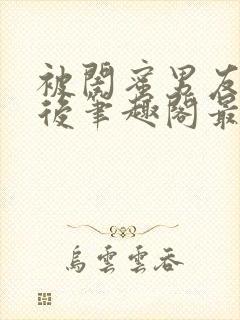 被閨蜜男友
後筆趣閣最
烏雲雲吞